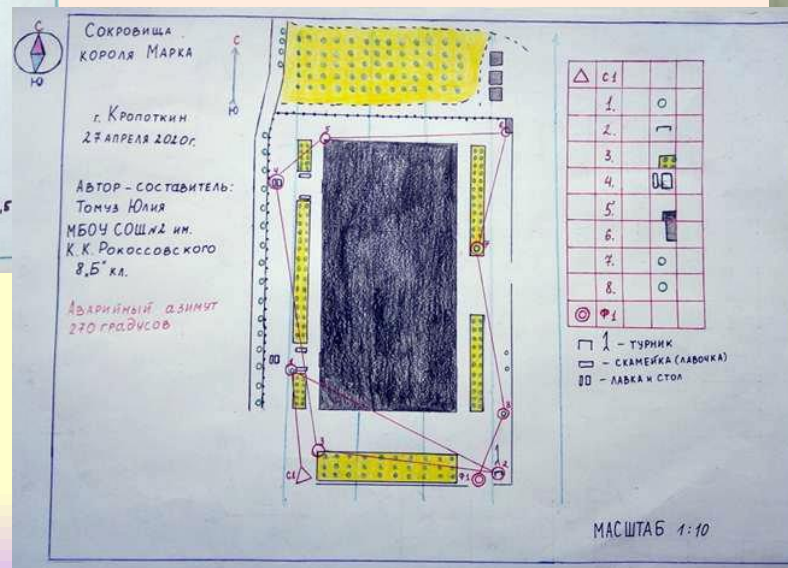 С
Ю
Сокровища
короля Марка
г. Кропоткин
27 апреля 2020г.
Автор-составитель:
Томуз Юлия
МБОУ СОШ№2 им.
К.К. Рокоссовского
8„Б" кл.
Аварийный азимут
270 градусов
С
Ю
5
6
4
7
1
8
3
2
С1
Ф1
С1
1.
2.
3.
4.
5.
6.
7.
8.
Ф1
- турник
- скамейка (лавочка)
- лавка и стол
Масштаб 1:10